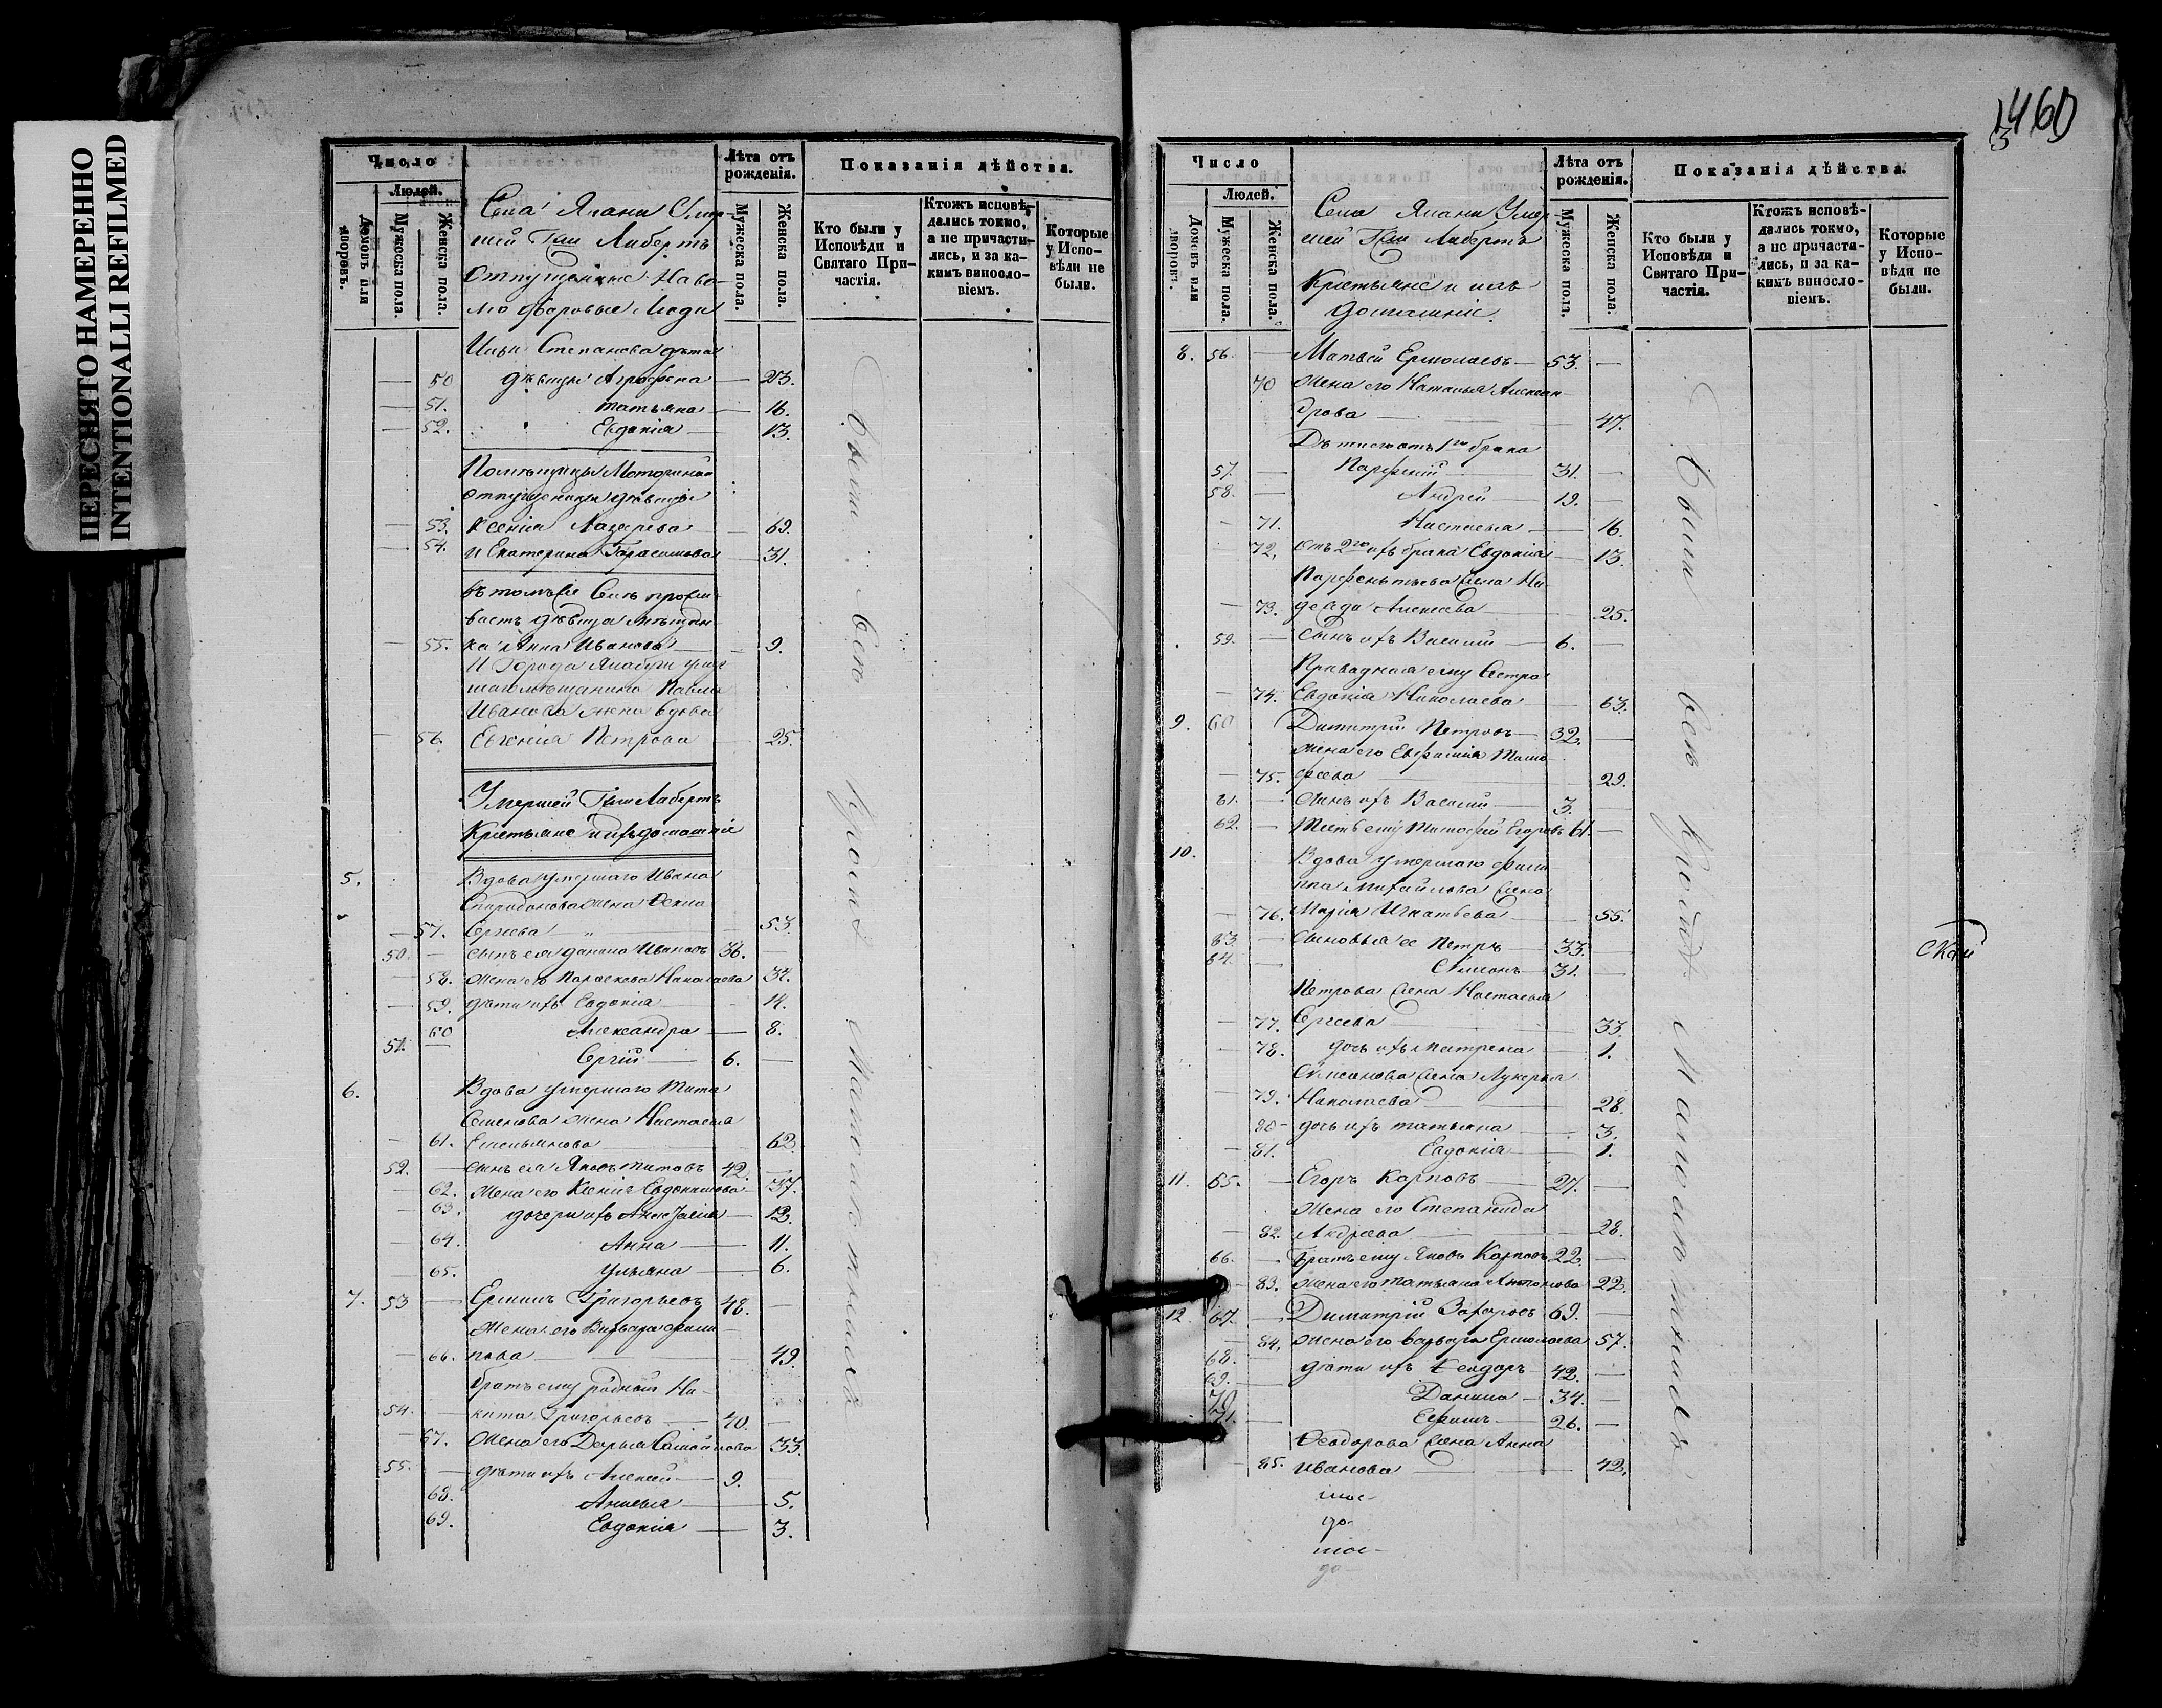 ПЕРЕСНЯТО НАМЕРЕННО
INTENTIONALLI REFILMED
Число
Людей.
Домовъ или дворовъ.
Мужеска пола.
Женска пола.
Села Яланы Умер-
шей Гжи Либертъ
Отпущенные на во-
лю дворовые люди
Лѣта отъ рожденія.
Мужеска пола.
Женска пола.
Показанія дѣйства.
Кто были у Исповѣди и Святаго При-частія.
Ктожъ исповѣ-дались токмо, а не причасти-лись, и за ка-кимъ винослo-віемъ.
Которые у Испо-вѣди не были.
Степанова дѣти
50 дѣвицы Аграфена 23.
51. татьяна 16.
52. Евдокія 13.
Помѣщицы
отпущенныя дѣвицы
53. Ксенія Лазарева 69.
54. и Екатерина Герасимова 31.
въ томъ же Селѣ прожи-
ваетъ дѣвица мѣщан
55. ка Анна Иванова 9.
И Города умер
шаго мѣщанина Павла
Иванова жена вдова
56. Евгенія Петрова 25.
Умершей Гжи Либертъ
Крестьяне и ихъ домашніе
5. Вдова умершаго Ивана
Спиридонова жена
57. Сергеева 53.
50. сынъ ея Данило Ивановъ 36.
58. жена его Параскева Николаева 34.
59. дѣти ихъ Евдокія 14.
60 Александра 8.
51. Сергій 6.
6. Вдова умершаго Тита
Семенова жена Настасья
61. Емельянова 62.
52. сынъ ея Яковъ титовъ 42.
62. жена его Ксенія Евдокимова 37.
63. дочери ихъ 12.
64. Анна 11.
65. Ульяна 6.
7. 53 Ермилъ Григорьевъ 48.
Жена его Варвара Фили
66. пова 49.
братъ ему родный Ни-
54. кита Григорьевъ 40.
67. Жена его Дарья Самойлова 33.
55. дѣти ихъ Алексей 9.
68. Анисья 5.
69. Евдокія 3.
Были всѣ кромѣ малолѣтныхъ
1460
3
Число
Людей.
Домовъ или дворовъ.
Мужеска пола.
Женска пола.
Села Яланы Умер-
шей Гжи Либертъ
Крестьяне и ихъ
Домашніе.
Лѣта отъ рожденія.
Мужеска пола.
Женска пола.
Показанія дѣйства.
Кто были у Исповѣди и Святаго При-частія.
Ктожъ исповѣ-дались токмо, а не причасти-лись, и за ка-кимъ винослo-віемъ.
Которые у Испо-вѣди не были.
8. 56. Матвей Ермолаевъ 53.
70 Жена его Наталья Алексан
дрова 47.
Дѣти его отъ 1го брака
57. Парфеній 31.
58. Андрей 19.
71. Настасья 16.
72. Отъ 2го ихъ брака Евдокія 13.
Парфентьева жена На
73. дежда Алексеева 25.
59. Сынъ ихъ Василій 6.
ему Сестра
74. Евдокія Николаева 63.
9. 60 Димитрій Петровъ 32.
жена его Евфимія Тимо
75. феева 29.
61. Сынъ ихъ Василій 3.
62. Тесть ему Тимофей Егоровъ 61.
10. Вдова умершаго Фили
ппа Михайлова жена
76. Марія Игнатьева 55.
63. Сыновья ее Петръ 33.
64. Симеонъ 31.
Петрова жена Настасья
77. Сергеева 33.
78. дочь ихъ Матрена 1.
Симеонова жена Лукерья
79. Николаева 28.
80 дочь ихъ татьяна 3.
81. Евдокія 1.
11. 65. Егоръ Карповъ 27.
Жена его Степанида
82. Андреева 28.
66. Братъ ему Яковъ Карповъ 22.
83. Жена его Татьяна Антонова 22.
12. 67. Димитрій Захаровъ 69.
84. Жена его Варвара Ермолаева 57.
68. дѣти их Ѳеодоръ 42.
69.
70 Данило 34.
71. Ефимъ 26.
Ѳеодорова жена Анна
85. Иванова 42.
Были всѣ кромѣ малолѣтныхъ